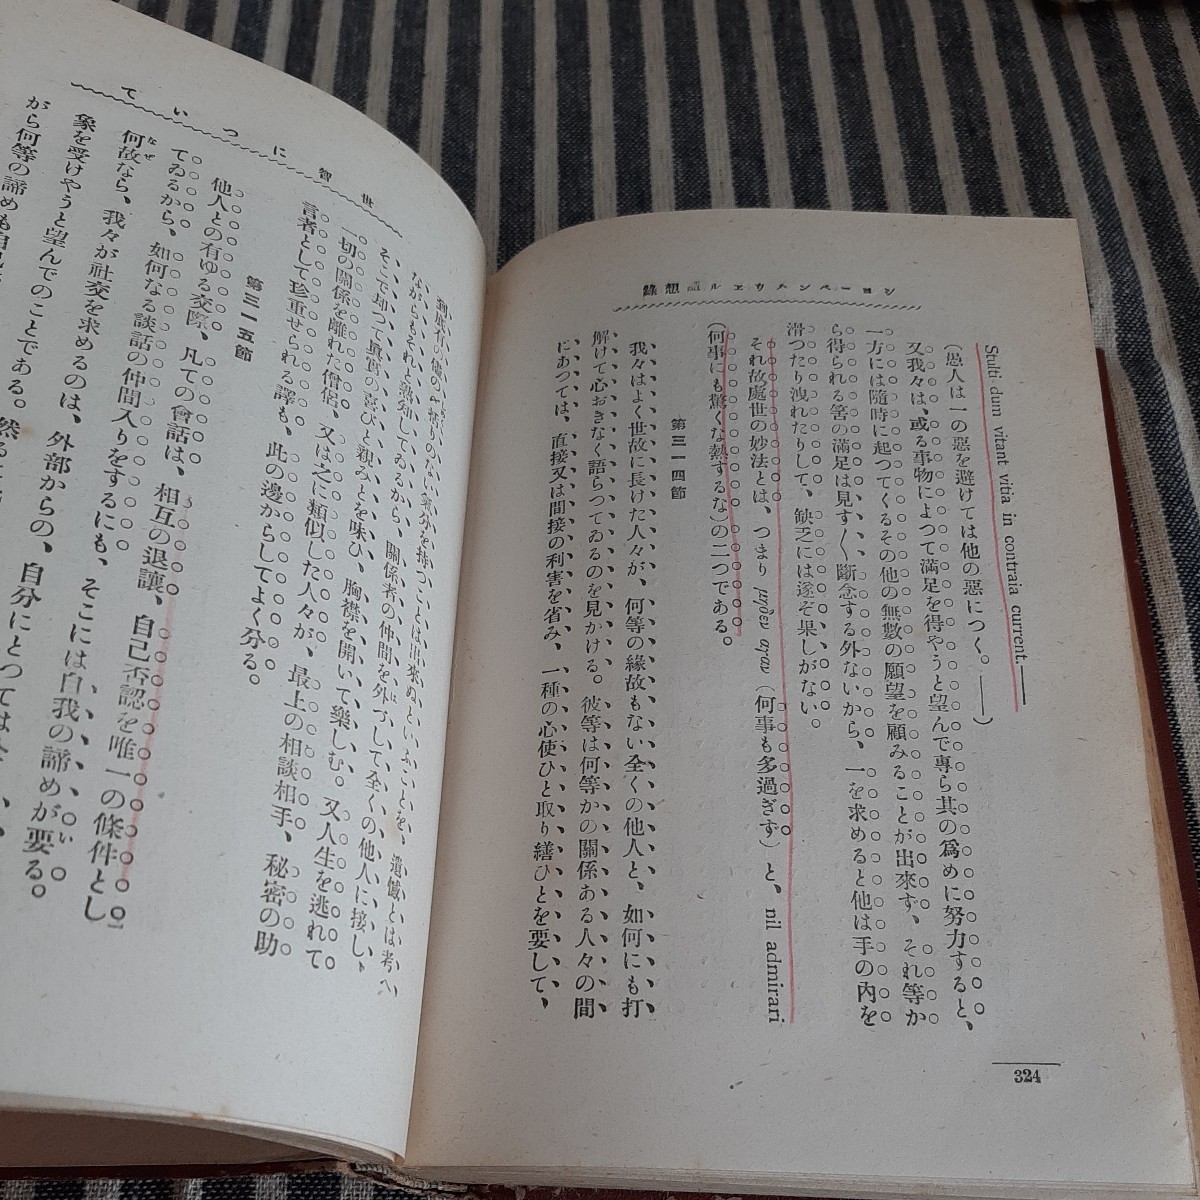 ショーペンハウエル瞑想錄
Stulti dum vitant vitia in contraia current.——
(愚人は一の惡を避けては他の惡につく。——)
又我々は、或る事物によつて滿足を得やうと望んで專ら其の爲めに努力すると、
一方には隨時に起つてくるその他の無數の願望を顧みることが出來ず、それ等か
ら得られる筈の滿足は見す〱斷念する外ないから、一を求めると他は手の內を
滑つたり洩れたりして、缺乏には遂ぞ果しがない。
それ故處世の妙法とは、つまり μηδεν αγαν (何事も多過ぎず) と、nil admirari
(何事にも驚くな熱するな)の二つである。
第三一四節
我々はよく世故に長けた人々が、何等の緣故もない全くの他人と、如何にも打
解けて心おきなく語らつてゐるのを見かける。彼等は何等かの關係ある人々の間
にあつては、直接又は間接の利害を省み、一種の心使ひと取り繕ひとを要して、
324
世智について
ないといふことを、遺憾とは考へ
ながらもそれと熟知してゐるから、關係者の仲間を外づして全くの他人に接し、
そこで却つて眞實の喜びと親みとを味ひ、胸襟を開いて樂しむ。又人生を逃れて
一切の關係を離れた僧侶、又は之に類似した人々が、最上の相談相手、秘密の助
言者として珍重せられる譯も、此の邊からしてよく分る。
第三一五節
他人との有ゆる交際、凡ての會話は、相互の退讓、自己否認を唯一の條件とし
てゐるから、如何なる談話の仲間入りをするにも、そこには自我の諦めが要る。
何故なら、我々が社交を求めるのは、外部からの、自分にとつては
象を受けやうと望んでのことである。然るに
がら何等の諦めも自己